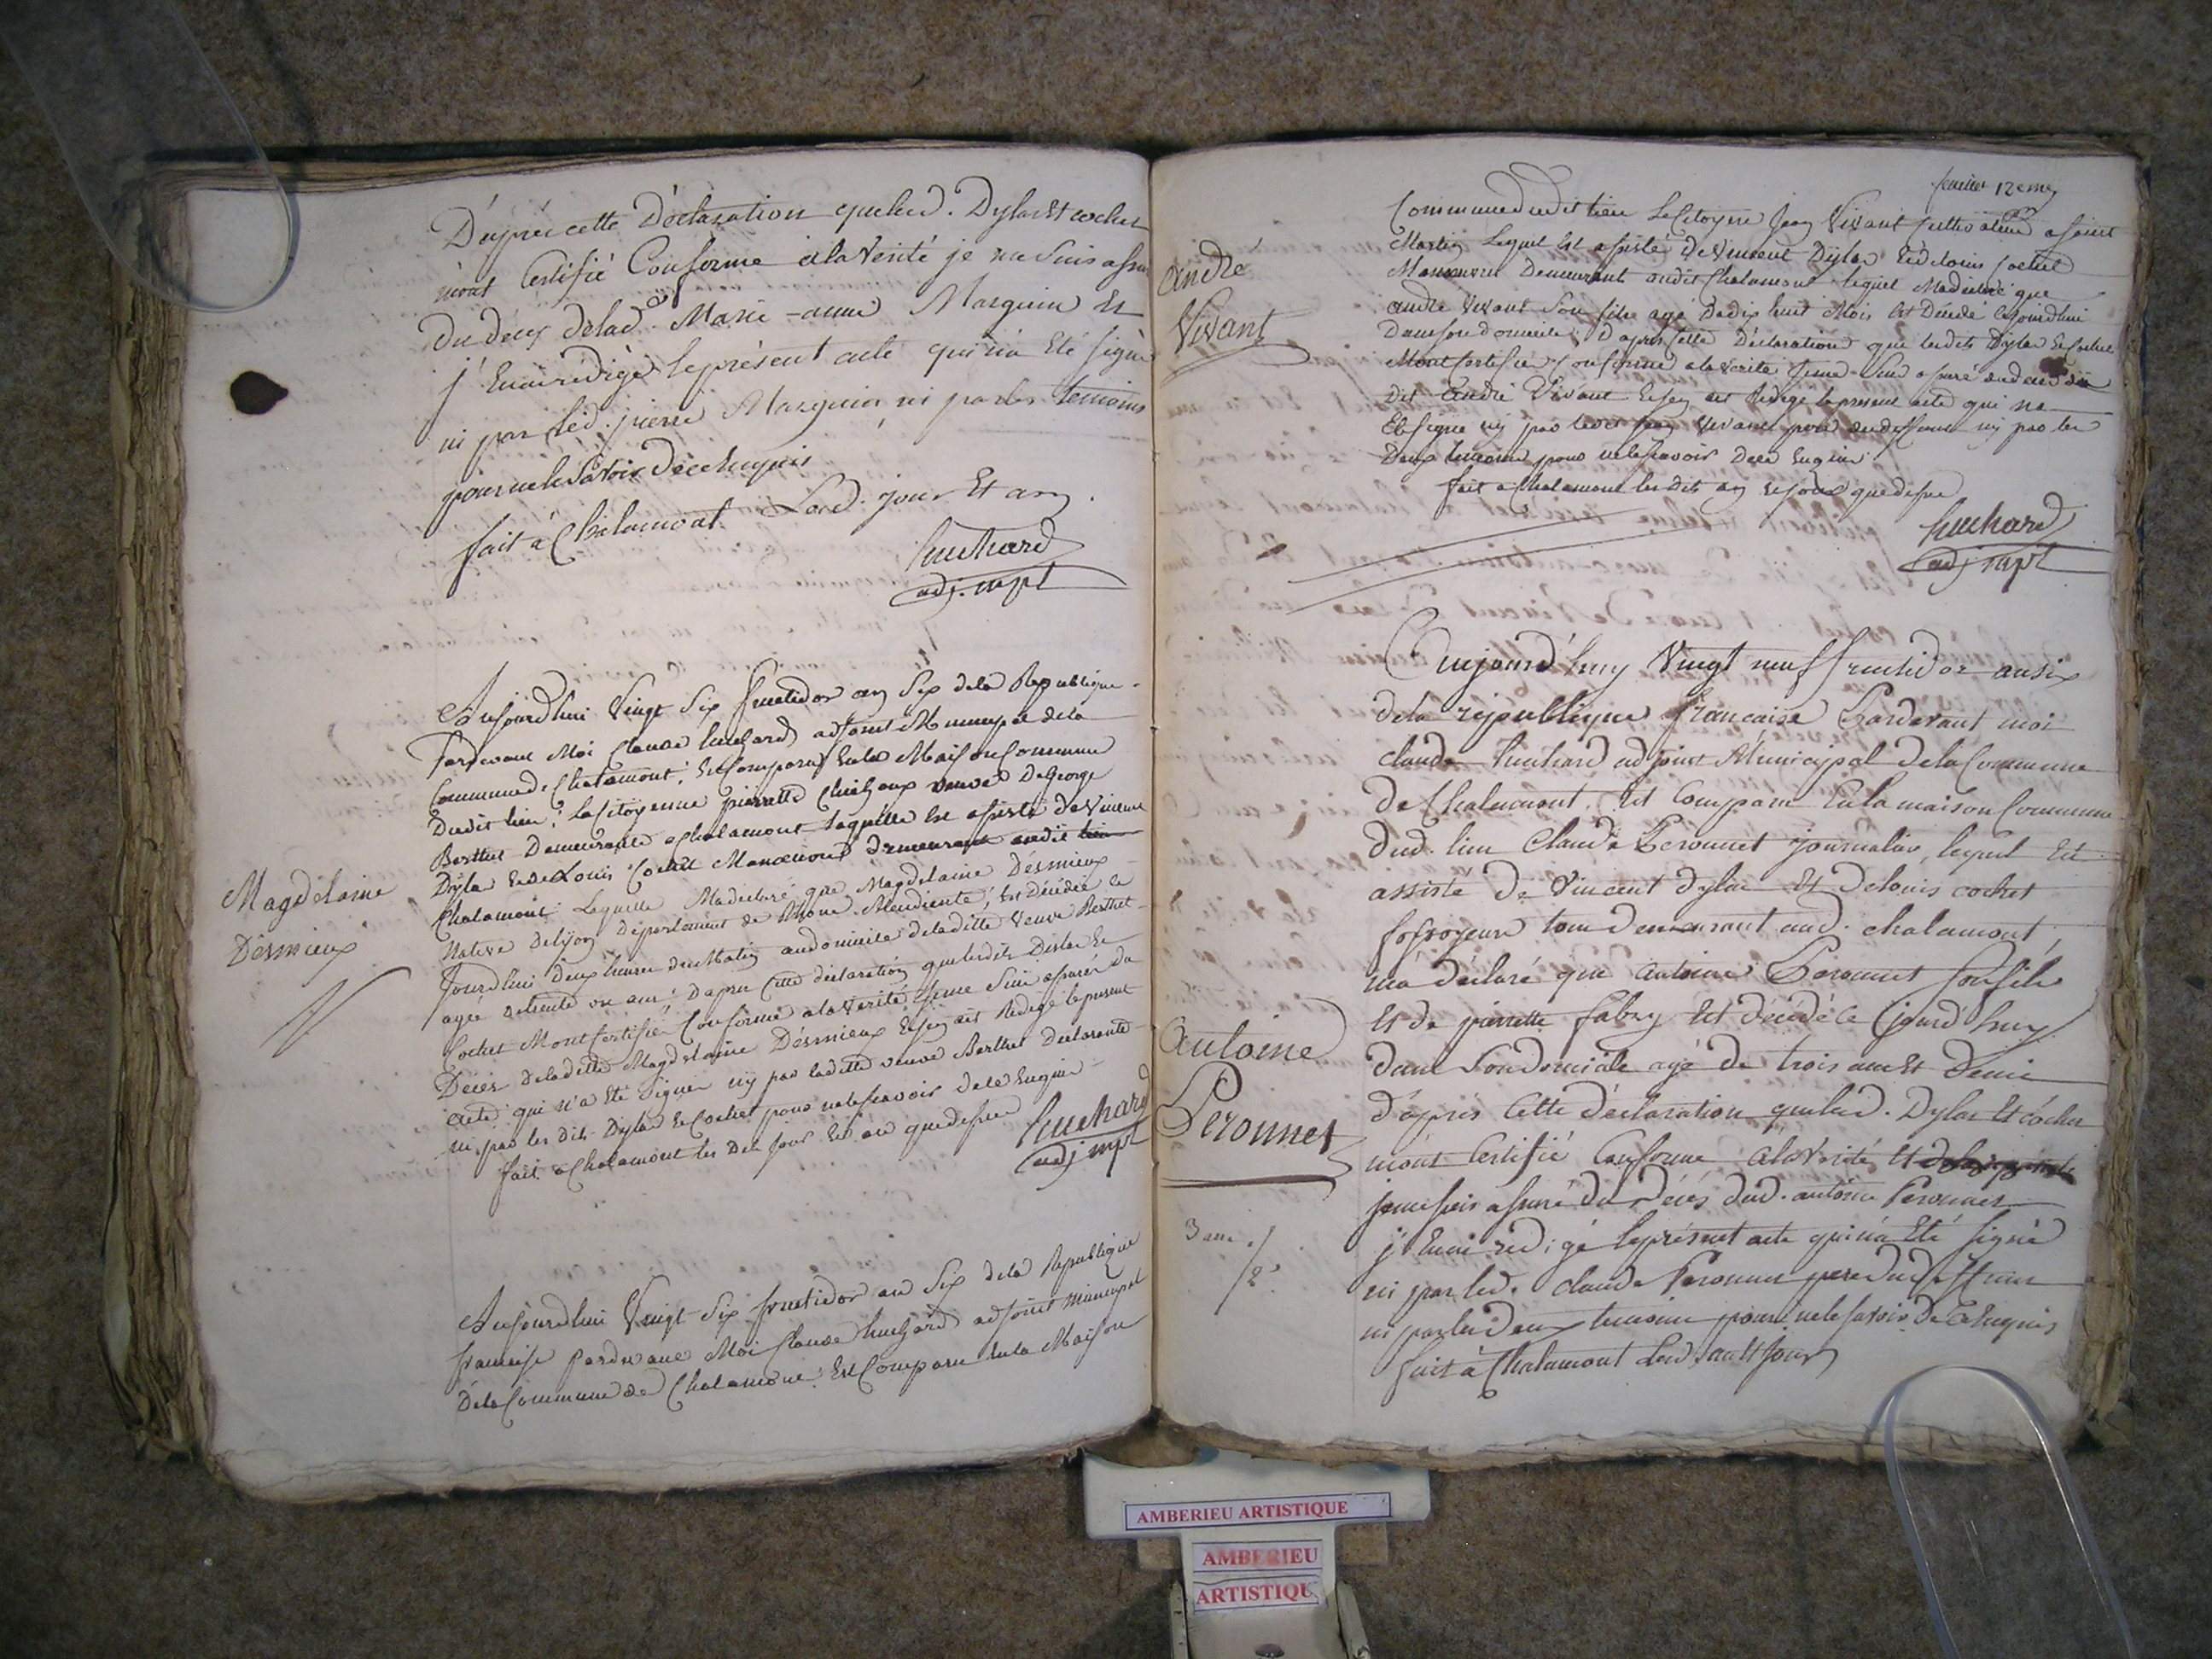 D'après cette Déclaration que lesd. Dylas Et cochet
m'ont Certifié Conforme à la Verité je me suis assuré
du déces de lad. Marie-anne Marguin Et
j'En ai redigé le présent acte qui n'a Eté signé
ni par led. pierre Marguin ni par les temoins
pour ne le Savoir de ce Enquis
fait à Chalamont Lesd. jour Et an.
huchard
adj. mpl
Magdelaine
Désmieux
Aujourdhui Vingt Six fructidor an Six de la Republique
Pardevant Moi Claude huchard adjoint Municipal de la
Commune de Chalamont, Est Comparu En la Maison Commune
Dudit lieu, La Citoyenne pierrette veuve De George
Berthet Demeurante a Chalamont laquelle Est assistée de Vincent
Dylas Et de Louis Cochet Manoeuvres demeurant audit
Chalamont Laquelle Ma declaré que Magdelaine Désmieux
Native De lyon Département du Rhone Mendiente, Est Décédée ce
Jourdhui deux heures du Matin au domicile de laditte Veuve Berthet
agée de trente ans; D'apres Cette déclaration que lesdits Dislas Et
Cochet Mont Certifiée Conforme a la Verité, Je me Suis assurée du
Déces de laditte Magdelaine Désmieux Et J'en ait Redigé le present
acte qui n'a Eté Signée ny par laditte veuve Berthet declarente
ni par les dits Dylas Et Cochet pour ne le scavoir de ce Enquis
fait a Chalamont les Dits Jour Et an que dessus
huchard
adj mpl
Aujourdhui Vingt Six fructidor an Six de la Republique
francaise pardevant Moi Claude huchard adjoint Municipal
De la Commune de Chalamont Est Comparu En la Maison
feuillet 12eme
Commune dudit lieu Le Citoyen Jean Vivant Cultivateur a saint
Martin Lequel Est assisté De Vincent Dylas Et de Louis Cochet
Manoeuvres Demeurant audit Chalamont lequel Ma declaré que
André Vivant Son fils agé De dix huit Mois Est Décédé Cejourdhui
Dans son domicile; D'apres Cette Déclaration que lesdits Dylas Et Cochet
Mont Certifiée Conforme a la verité Je me Suis assuré du deces du
Dit André Vivant Et J'en ait Redigé le present acte qui na
Eté signé ny par ledit Jean Vivant pere du deffunt ny par les
Deux temoins pour ne le scavoir De ce Enquis
fait a Chalamont les dits an Et jour que dessus
huchard
adj mpl
André
Vivant
Aujourd'huy Vingt neuf fructidor an six
de la république française Pardevant moi
claude huchard adjoint Municipal de la Commune
de Chalamont. Est Comparu En la maison Commune
dud. lieu Claude Peronnet journalier, lequel Est
assisté de Vincent dylas Et de louis cochet
fossoyeurs tous demeurant aud. chalamont,
m'a déclaré que antoine Peronnet son fils
Et de pierrette fabry Est décédé ce jourd'huy
dans Son domicile agé de trois ans Et demie
d'après Cette déclaration que lesd. Dylas Et cochet
m'ont Certifié Conforme à la Verité Et
je me suis assuré du décès dud. antoine Peronnet
j'En ai redigé le présent acte qui n'a Eté signé
ni par led. claude Peronnet pere du deffunt
ni par les deux temoins pour ne le savoir de ce Enquis
fait à Chalamont Lesd. an Et jour
Antoine
Peronnet
3 ans 1/2
AMBERIEU ARTISTIQUE
AMBERIEU
ARTISTIQU